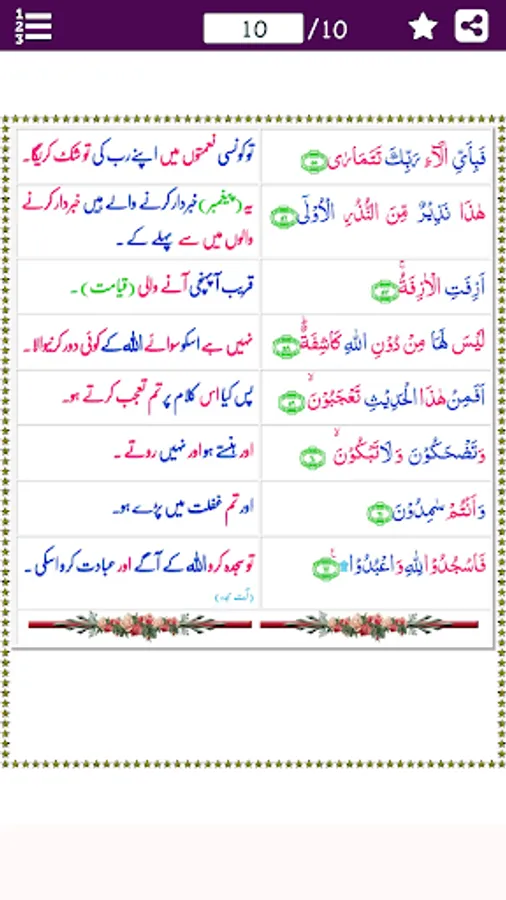 1
2
3
10 /10
فَبِأَىِّ اٰلَآءِ رَبِّكَ تَتَمَارٰى ﴿۵۵﴾
تو کونسی نعمتوں میں اپنے رب کی تو شک کریگا۔
هٰذَا نَذِيْرٌ مِّنَ النُّذُرِ الْاُوْلٰٓى ﴿۵۶﴾
یہ (پیغمبر) خبردار کرنے والے ہیں خبردار کرنے
والوں میں سے پہلے کے ۔
اَزِفَتِ الْاٰزِفَةُ ۚ ﴿۵۷﴾
قریب آپہنچی آنے والی (قیامت) ۔
لَيْسَ لَهَا مِنْ دُوْنِ اللّٰهِ كَاشِفَةٌ ؕ ﴿۵۸﴾
نہیں ہے اسکو سوائے اللہ کے کوئی دور کرنیوالا۔
اَفَمِنْ هٰذَا الْحَدِيْثِ تَعْجَبُوْنَ ۙ ﴿۵۹﴾
پس کیا اس کلام پر تم تعجب کرتے ہو۔
وَتَضْحَكُوْنَ وَلَا تَبْكُوْنَ ۙ ﴿۶۰﴾
اور ہنستے ہو اور نہیں روتے ۔
وَاَنْتُمْ سٰمِدُوْنَ ﴿۶۱﴾
اور تم غفلت میں پڑے ہو۔
فَاسْجُدُوْا لِلّٰهِ وَاعْبُدُوْا ۩ ﴿۶۲﴾
تو سجدہ کرو اللہ کے آگے اور عبادت کرو اسکی ۔
(آیت سجدہ)